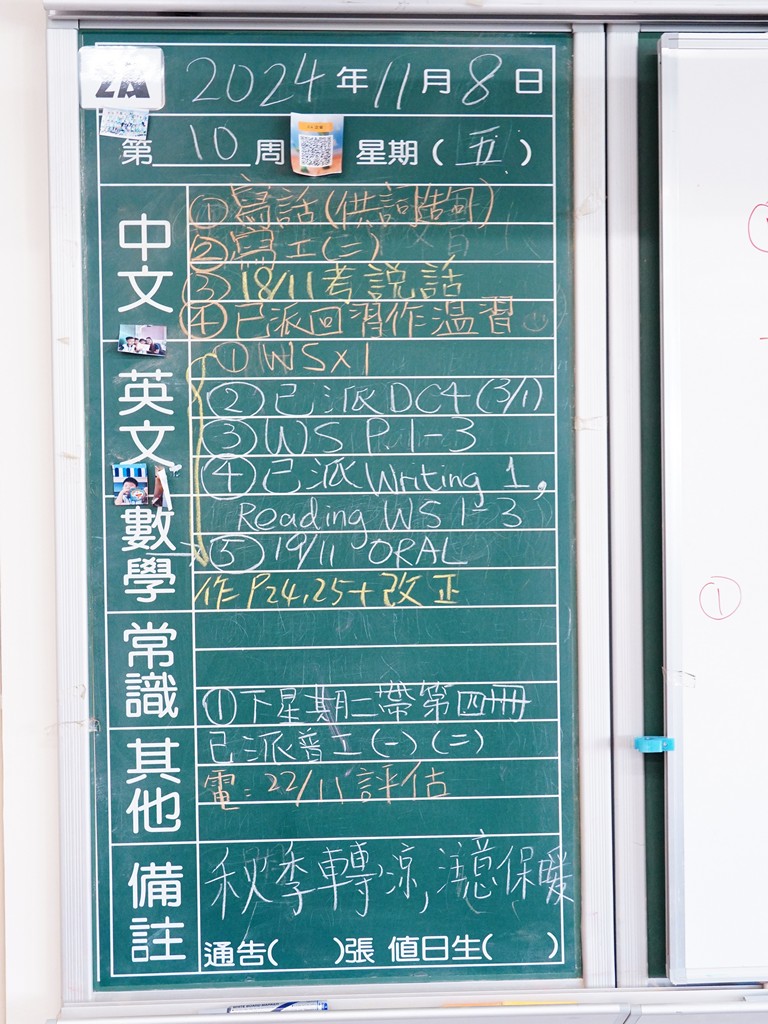 2A
2024年11月8日
第10周 星期(五)
中文
①寫話(供詞告可)
②寫工(二)
③18/11考說話
④已派回習作溫習
英文
①WS x 1
②已派DC4(3/1)
③WS P.1-3
④已派Writing 1,
Reading WS 1-3
⑤19/11 ORAL
數學
作P24,25+改正
常識
①下星期二帶第四冊
其他
已派普工(一)(二)
電:22/11評估
備註
秋季轉涼,注意保暖
通告( )張 值日生( )
①